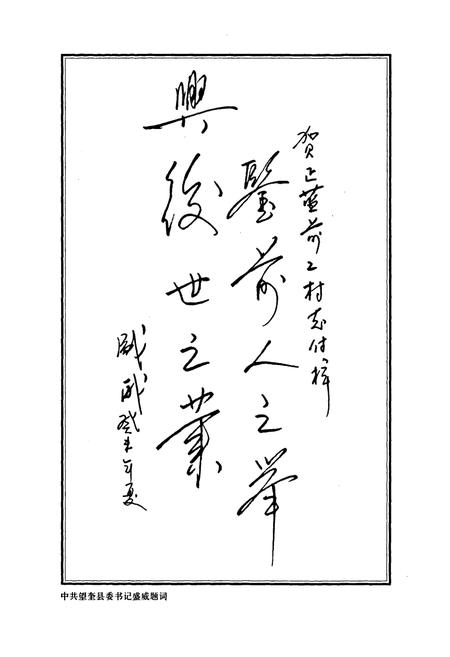 贺正蓝前二村志付梓
鉴前人之举
興後世之業
盛威癸未年夏
中共望奎县委书记盛威题词